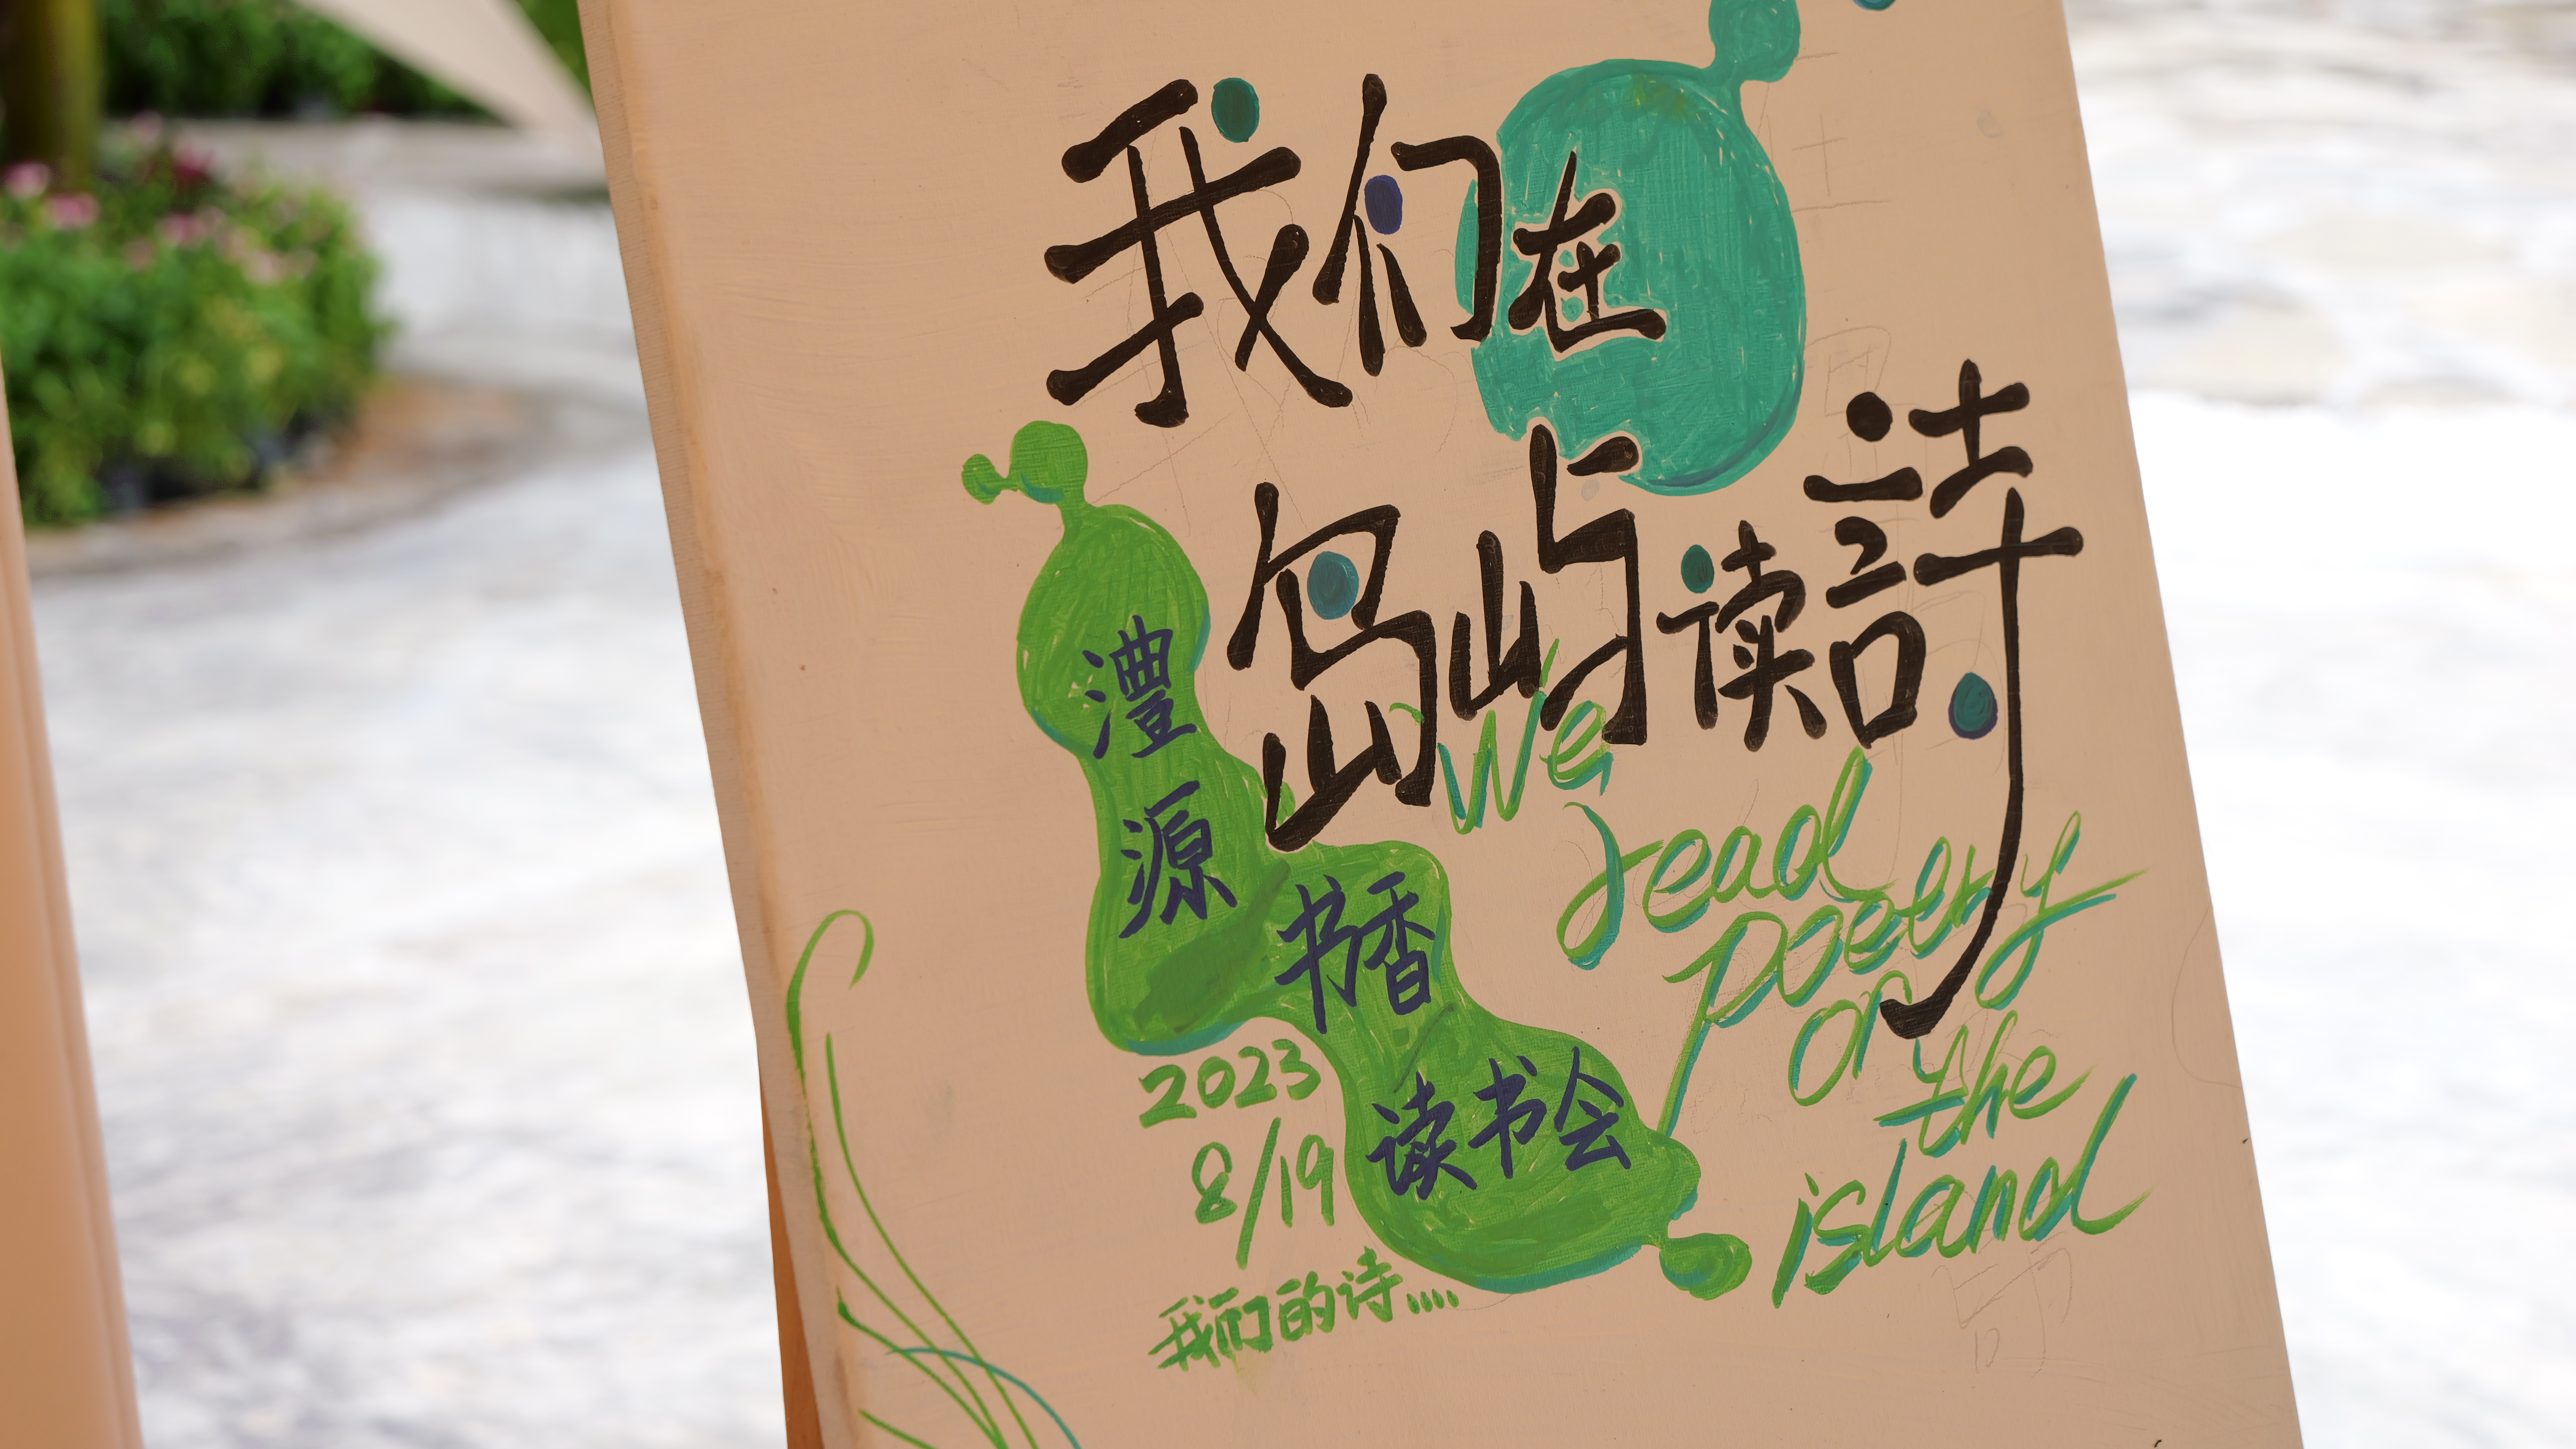 我们在
岛屿读詩
We
read
poetry
on
the
island
澧源
书香
读书会
2023
8/19
我们的诗....